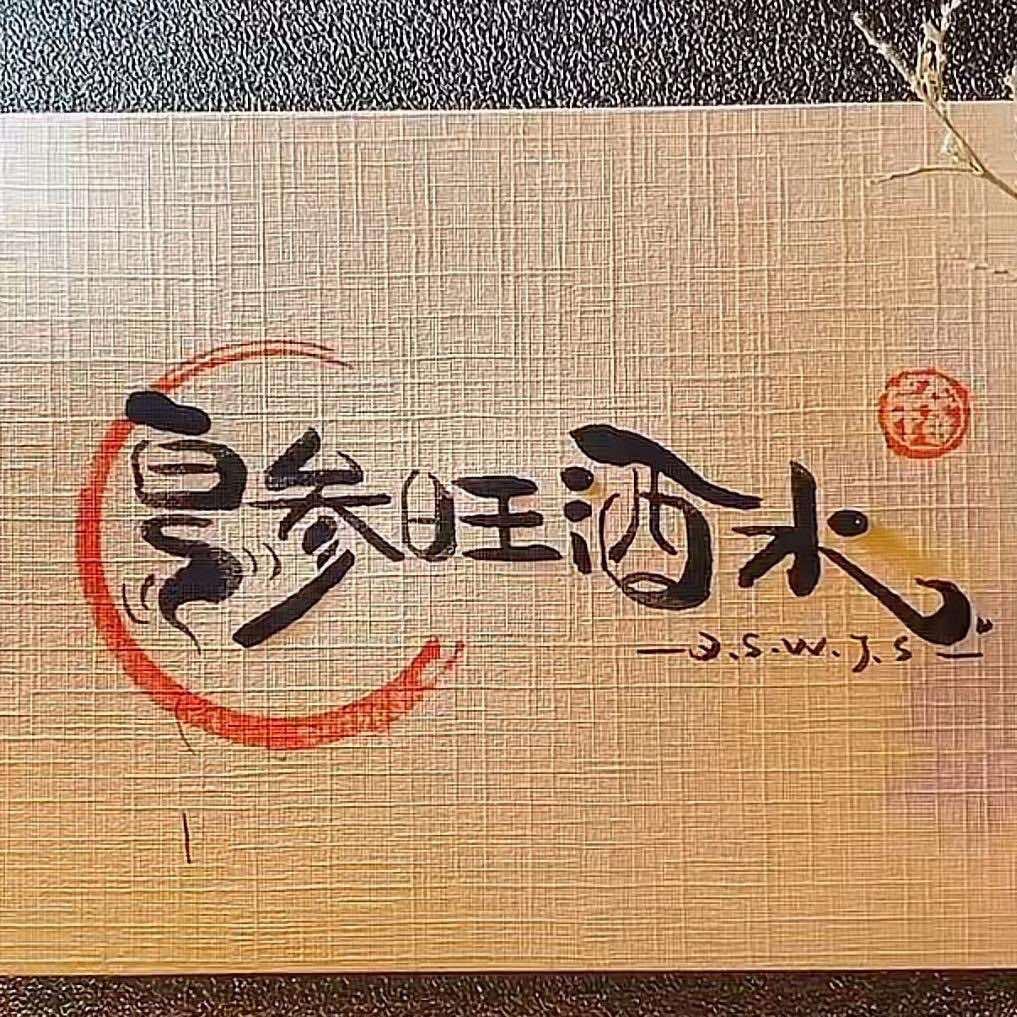 参旺酒水
B.S.W.J.S